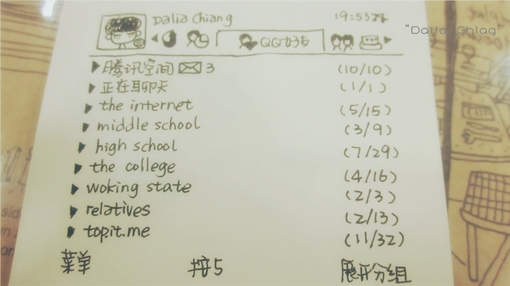 Dalia Chiang 19:53
"Dalia Chiag"
QQ好友
腾讯空间 3 (10/10)
正在聊天 (1/1)
the internet (5/15)
middle school (3/9)
high school (7/29)
the college (4/16)
woking state (2/3)
relatives (2/13)
topit.me (11/32)
菜单 按5 展开分组